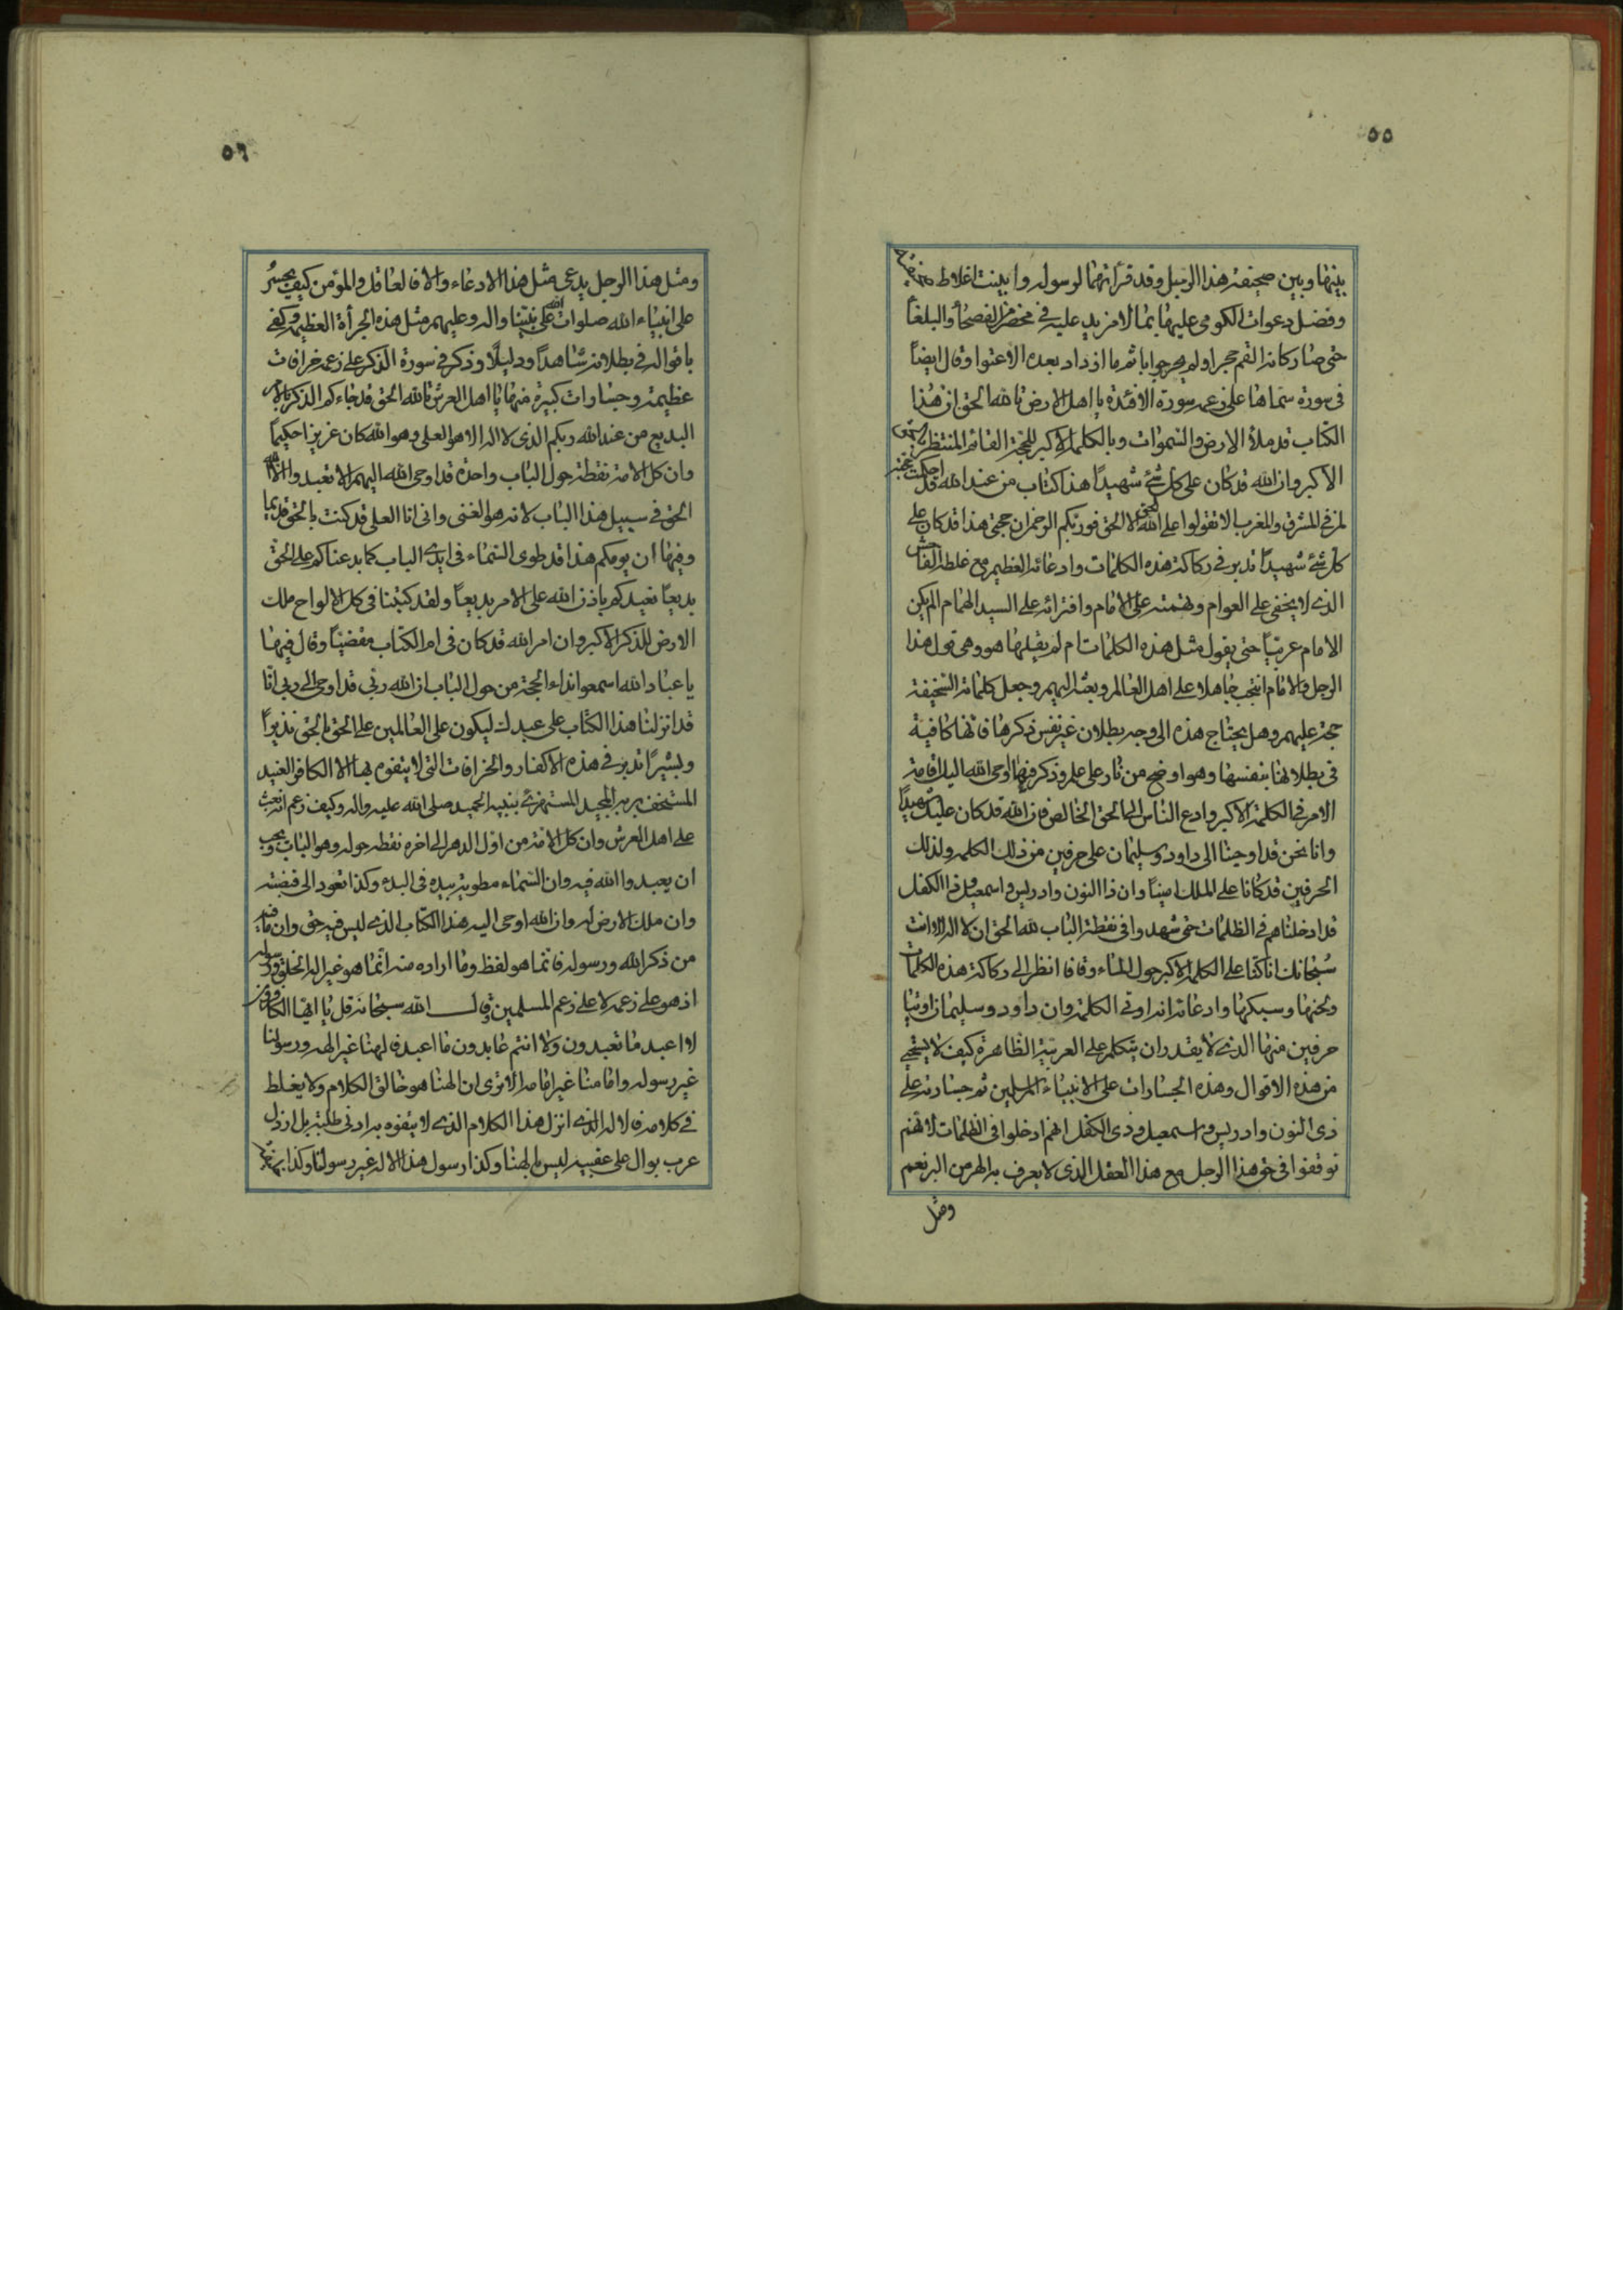 ٥٥
بينها وبين صحيفة هذا الرجل وقد قرأتهما لرسوله وابينت اغلاط
وفضل دعوات الكومى عليها بما لا مزيد عليه في محضر الفصحا والبلغا
حتى صار كانه القم حجرا ولم يحر جوابا ثم ما ازداد بعده الا عتوا وقال ايضاً
فى سورة سماها على زعمه سورة الافئدة يا اهل الارض تالله الحق ان هذا
الكتاب قد ملأ الارض والسموات وبالكلمة الاكبر للحجة القائم المنتظر بالحق
الاكبر وان الله قد كان على كل شئ شهيداً هذا كتاب من عند الله قد احكمت حجته
لمن في المشرق والمغرب الا تقولوا على الله الحق الا الحق فوربكم الرحمن ان حجتى هذا قد كان على
كل شئ شهيداً تدبر في ركاكة هذه الكلمات وادعائه العظيم مع غلطه الفاحش
الذى لا يخفى على العوام وتهمته على الامام وافترائه على السيد الهمام الم يكن
الامام عربيّاً حتى يقول مثل هذه الكلمات ام لم يقلها هو وهى قول هذا
الرجل والامام انتجب جاهلا على اهل العالم وبعثه اليهم وجعل كلماته السخيفة
حجة عليهم وهل يحتاج هذه الى وجه بطلان غير نفس ذكرها فانها كافية
فى بطلانها بنفسها وهو اوضح من نار على علم وذكر فيها اوحى الله اليك اقامة
الامر فى الكلمة الاكبر وادع الناس الى الحق الخالص فان الله قد كان عليك شهيداً
وانا نحن قد اوحينا الى داود وسليمان على حرفين من ذلك الكلمه ولذلك
الحرفين قد كانا على الملك امينا وان ذا النون وادريس واسمعيل وذا الكفل
قد ادخلناهم فى الظلمات حتى شهدوا فى نقطة الباب لله الحق ان لا اله الا انت
سبحانك انا كنا على الكلمة الاكبر حول الماء وقافا انظر الى ركاكة هذه الكلمات
ولحنها وسبكها وادعائه انه اوتى الكلمة وان داود وسليمان اوتيا
حرفين منها الذى لا يقدر ان يتكلم على العربية الظاهرة كيف لا يستحيى
من هذه الاقوال وهذه الجسارات على الانبياء المرسلين ثم جسارته على
ذى النون وادريس واسمعيل وذى الكفل انهم ادخلوا فى الظلمات لانهم
توقفوا فى حق هذا الرجل مع هذا العقل الذى لا يعرف به الهر من البر نعم
ومثل
٥٦
ومثل هذا الرجل يدعى مثل هذا الادعاء والا فالعاقل والمؤمن كيف يجسر
على انبياء الله صلوات الله على نبينا واله وعليهم مثل هذه الجرأة العظيمة وكفى
باقواله في بطلانه شاهداً ودليلا وذكر في سورة الذكر على زعمه خرافات
عظيمة وجسارات كبيرة منها يا اهل العرش تالله الحق قد جاءكم الذكر بالامر
البديع من عند الله ربكم الذى لا اله الا هو العلى وهو الله كان عزيزا حكيماً
وان كل الامة نقطة حول الباب واحدة قد اوحى الله اليهم الا تعبدوا الا الله
الحق في سبيل هذا الباب لانه هو الغنى وانى انا العلى قد كنت بالحق قديما
وفيها ان يومكم هذا قد طوى السماء فى ايدى الباب كما بدعناكم على الحق
بديعاً نعيدكم باذن الله على الامر بديعاً ولقد كتبنا فى كل الالواح ملك
الارض للذكر الاكبر وان امر الله قد كان فى ام الكتاب مقضيّاً وقال فيها
يا عباد الله اسمعوا نداء الحجة من حول الباب ان الله ربى قد اوحى الى ربى انا
قد انزلنا هذا الكتاب على عبدك ليكون على العالمين على الحق بالحق نذيراً
وبشيراً تدبر فى هذه الاكفار والخرافات التى لا يتفوه بها الا الكافر العنيد
المستخف بربه المجيد المستهزئ بنبيه الحميد صلى الله عليه واله وكيف زعم انه بعث
على اهل العرش وان كل الامة من اول الدهر الى اخره نقطة حوله وهو الباب ويجب
ان يعبدوا الله فيه وان السماء مطوية بيده فى البدء وكذا تعود الى قبضته
وان ملك الارض له وان الله اوحى اليه هذا الكتاب الذى ليس فيه حق وان ما فيه
من ذكر الله ورسوله فانما هو لفظ وما اراده منه انما هو غير اله الخلق ورسوله
اذ هو على زعمه لا على زعم المسلمين قال الله سبحانه قل يا ايها الكافرون
لا اعبد ما تعبدون ولا انتم عابدون ما اعبد فالهنا غير الهه ورسولنا
غير رسوله وامامنا غير امامه الا ترى ان الهنا هو خالق الكلام ولا يغلط
فى كلامه فالاله الذى انزل هذا الكلام الذى لا يتفوه به ادنى طلبة بل ارذل
عرب بوال على عقبيه ليس بالهنا وكذا رسول هذا الاله غير رسولنا وكذا